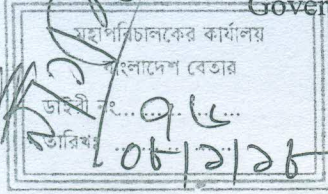 Gover
মহাপরিচালকের কার্যালয়
বাংলাদেশ বেতার
ডাইরী নং....৭৬....
তারিখঃ ০৮|১|১৮